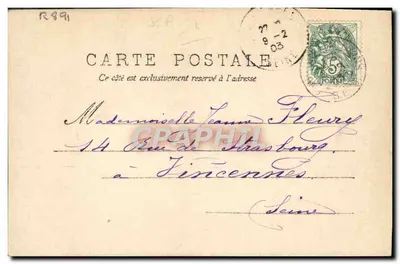 R891
CARTE POSTALE
Ce côté est exclusivement réservé à l'adresse
9-2
03
SEINE
5
Mademoiselle Jeanne Fleury
CPAPHIL
14 Rue de Strasbourg
à Vincennes
Seine